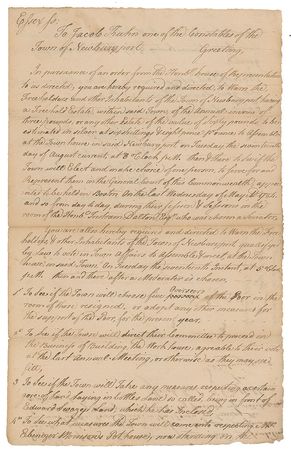 Essex ss.
To Jacob Knapp one of the Constables of the
Town of Newburyport, Greeting,
In pursuance of an order from the Honble. house of Representatives
to us directed, you are hereby required and directed, to Warn the
Freeholders and other Inhabitants of the Town of Newburyport, having
a Freehold Estate, within said Town, of the annual income of
three Pounds, or any other Estate of the value of sixty pounds, to be
estimated in silver at six shillings & eight pence pr ounce, to assemble
at the Town house in said Newburyport, on Tuesday the seventeenth
day of August current, at 3 Clock p.m. then & there to see if the
Town will Elect and make choice of one person, to serve for and
Represent them in the General Court of the Commonwealth, appointed
to be held in Boston on the last Wednesday of May 1784
and so from day to day, during their sessions, in the
room of the Honble Tristram Dalton Esqr. who was chosen a Senator.
You are also hereby required and directed to Warn the Freeholders
& other Inhabitants of the Town of Newburyport, qualified
by law to vote in Town Affairs to Assemble & meet at the Town
house, in said Town, on Tuesday the seventeenth Instant, at 5 Clock
p.m. then and there after a Moderator is chosen
1 To See if the Town will choose five Overseers of the Poor in the
room of those resigned, or adopt any other measures for
the support of the Poor, for the present year,
2 To See if the Town will direct their Committee to proceed in
the Business of Building the Work house, agreeable to their vote
at the last Annual Meeting, or otherwise as they may see
fitt,
3 To See if the Town will Take any measures respecting a certain
laying in lane so called being in front of
Edward Land, which he has Inclosed
4 To See what measures the Town will come into respecting Mr
Ebenezer Pot house, now standing on the